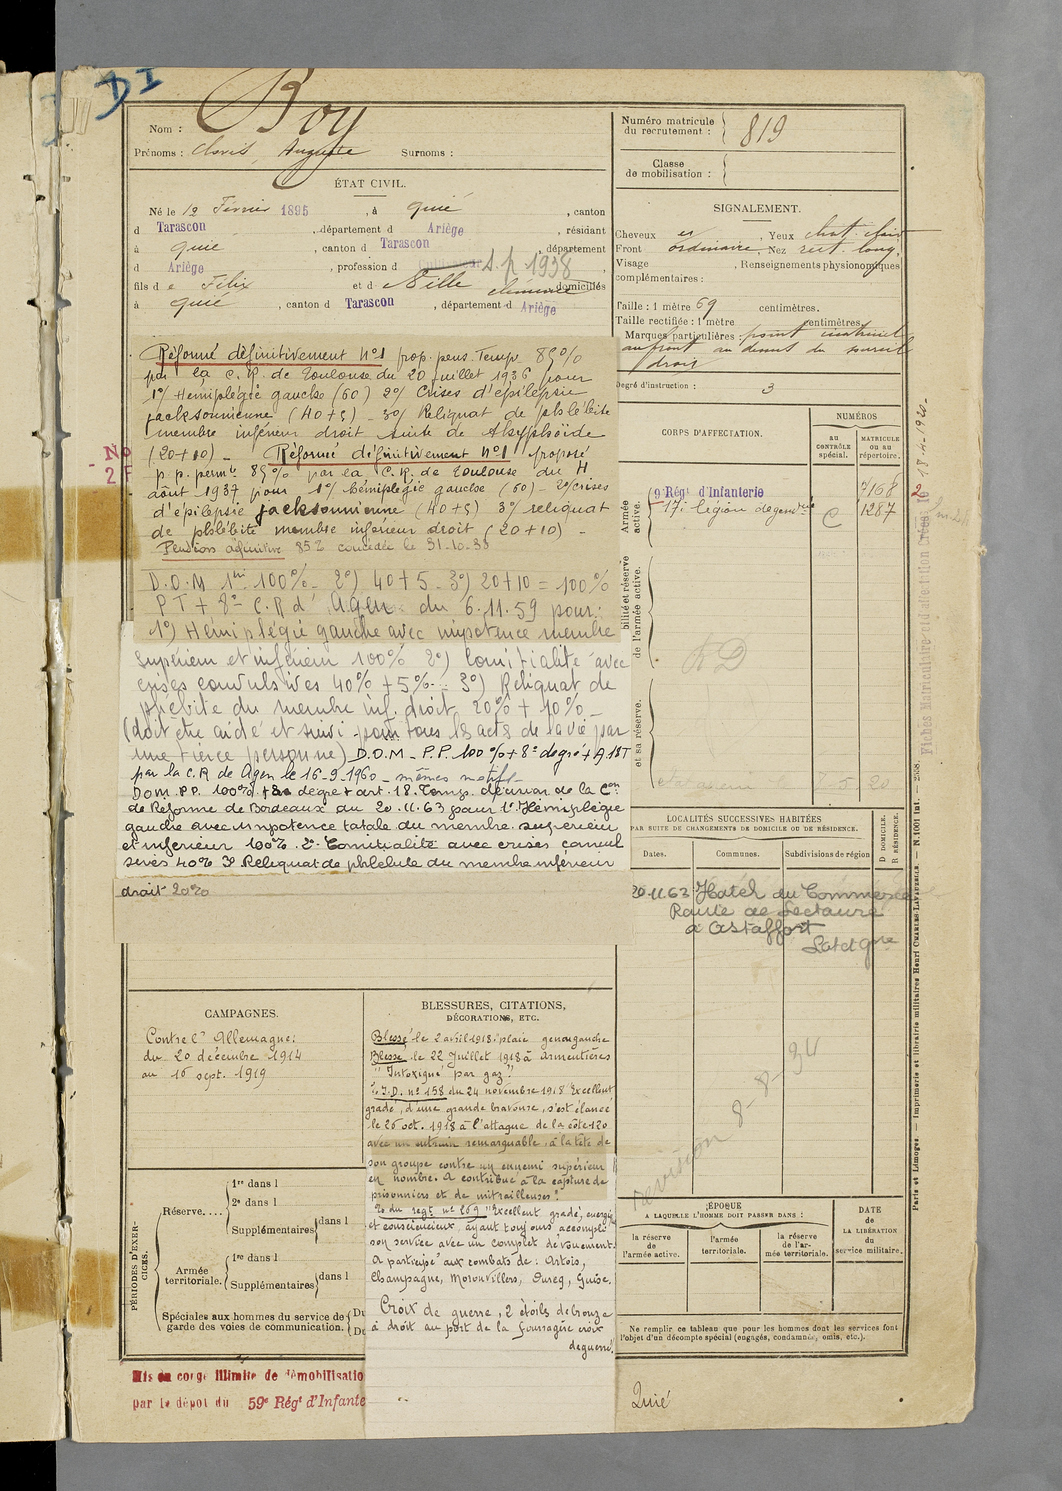 DI
Nom : Boy
Prénoms : Clovis, Auguste Surnoms :
ÉTAT CIVIL.
Né le 12 Février 1895, à Quié, canton
d Tarascon, département d Ariège, résidant
à Quié, canton d Tarascon, département
d Ariège, profession d S.P 1938,
fils de Félix et d Mille Clémence domiciliés
à Quié, canton d Tarascon, département d Ariège
Réformé définitivement n°1 prop. pens. Temp 85%
par la C.R. de Toulouse du 20 juillet 1936 pour
1°/ Hémiplégie gauche (60) 2°/ Crises d'épilepsie
jacksonnienne (40+5) - 3°/ Reliquat de phlébite
membre inférieur droit suite de
(20+10) - Réformé définitivement n°1 proposé
No
- 2 F
p.p. permte 85% par la C.R. de Toulouse du 4
août 1937 pour 1°/ hémiplégie gauche (60) - 2°/ crises
d'épilepsie jacksonnienne (40+5) 3°/ reliquat
de phlébite membre inférieur droit (20+10) -
Pension définitive 85% concédée le 31-10-38
D.O.M 1ent 100% - 2°) 40+5 - 3°) 20+10 = 100%
P T + 8° C.R d' Agen du 6.11.59 pour :
1°) Hémiplégie gauche avec impotence membre
supérieur et inférieur 100% 2°) Comitialité avec
crises convulsives 40% + 5% - 3°) Reliquat de
phlébite du membre inf. droit 20% + 10% -
(doit être aidé et suivi pour tous les actes de la vie par
une tierce personne) D.O.M - P.P. 100% + 8° degré + A. 18T
par la C.R de Agen le 16-9-1960 - mêmes motifs -
DOM. P.P. 100%. + 8e degré + art. 18. Temp. décision de la Con
de Réforme de Bordeaux du 20.11.63 pour 1°. Hémiplégie
gauche avec impotence totale du membre supérieur
et inférieur 100%. 2°. Comitialité avec crises convul
sives 40% 3° Reliquat de phlébite du membre inférieur
droit 20%
CAMPAGNES.
Contre l' Allemagne :
du 20 décembre 1914
au 16 sept. 1919
BLESSURES, CITATIONS,
DÉCORATIONS, ETC.
Blessé le 2 avril 1918 : plaie genou gauche
Blessé le 22 Juillet 1918 à Armentières
"Intoxiqué par gaz"
I.D. n° 158 du 24 novembre 1918 Excellent
gradé, d'une grande bravoure, s'est élancé
le 26 oct. 1918 à l'attaque de la côte 120
avec un entrain remarquable, à la tête de
son groupe contre un ennemi supérieur
en nombre. A contribué à la capture de
prisonniers et de mitrailleuses".
du regt n° 269 "Excellent gradé, énergique
et consciencieux, ayant toujours accompli
son service avec un complet dévouement.
A participé aux combats de : Artois,
Champagne, Moronvillers, Ourcq, Guise.
Croix de guerre, 2 étoiles de bronze
à droit au port de la fourragère croix
de guerre.
PÉRIODES D'EXERCICES.
Réserve. . . .
1re dans l
2e dans l
Supplémentaires dans l
Armée territoriale.
1re dans l
Supplémentaires dans l
Spéciales aux hommes du service de garde des voies de communication.
Du
Du
Mis en congé illimité de démobilisatio
par le dépôt du 59e Régt d'Infante
Numéro matricule du recrutement : 819
Classe de mobilisation :
SIGNALEMENT.
Cheveux , Yeux chat. clair
Front ordinaire, Nez rect. long,
Visage , Renseignements physionomiques
complémentaires :
Taille : 1 mètre 69 centimètres.
Taille rectifiée : 1 mètre centimètres.
Marques particulières : point cicatriciel
au front au dessus du sourcil
droit
Degré d'instruction : 3
CORPS D'AFFECTATION.
NUMÉROS
AU CONTRÔLE spécial.
MATRICULE OU AU répertoire.
Armée active.
9e Régt d'Infanterie 7168 2
17e légion de gendrie C 1287
bilité et réserve de l'armée active.
RD
et sa réserve.
LOCALITÉS SUCCESSIVES HABITÉES
PAR SUITE DE CHANGEMENTS DE DOMICILE OU DE RÉSIDENCE.
D. DOMICILE.
R. RÉSIDENCE.
Dates. Communes. Subdivisions de région
20.11.63 Hôtel du Commerce
Route de Lectoure
à Astaffort
Lot et Gne
révision 8-8-34
ÉPOQUE
A LAQUELLE L'HOMME DOIT PASSER DANS :
la réserve de l'armée active.
l'armée territoriale.
la réserve de l'armée territoriale.
DATE de LA LIBÉRATION du service militaire.
Ne remplir ce tableau que pour les hommes dont les services font
l'objet d'un décompte spécial (engagés, condamnés, omis, etc.).
Quié
Paris et Limoges. — Imprimerie et librairie militaires Henri CHARLES-LAVAUZELLE. — N. 1001 int.